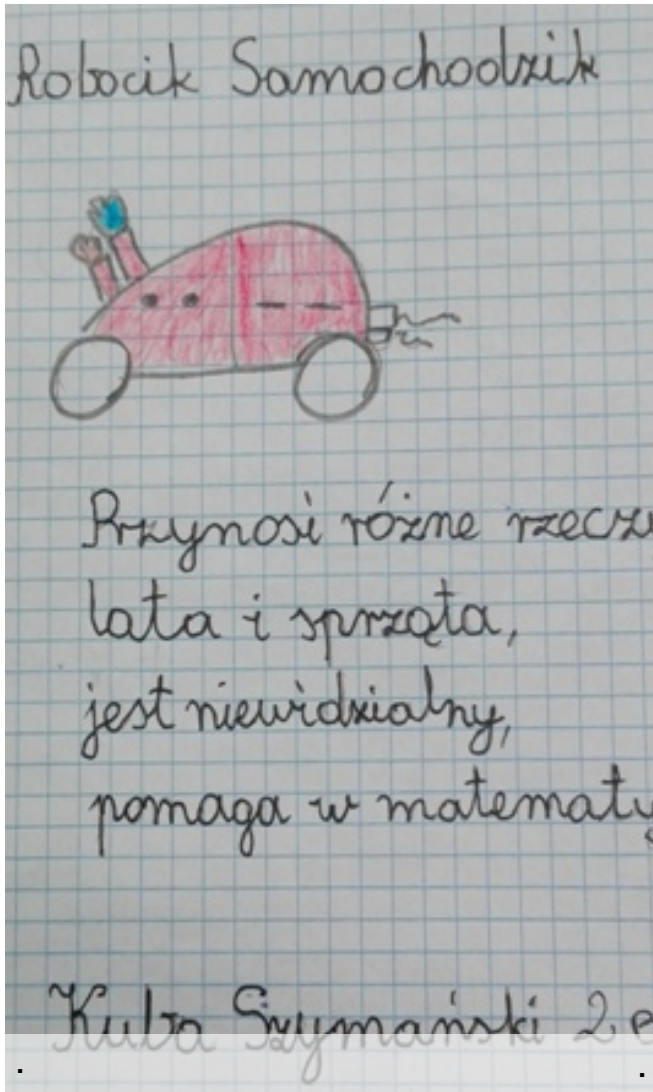 Robocik Samochodzik
Przynosi różne rzeczy
lata i sprząta,
jest niewidzialny,
pomaga w matematy
Kuba Szymański 2 e